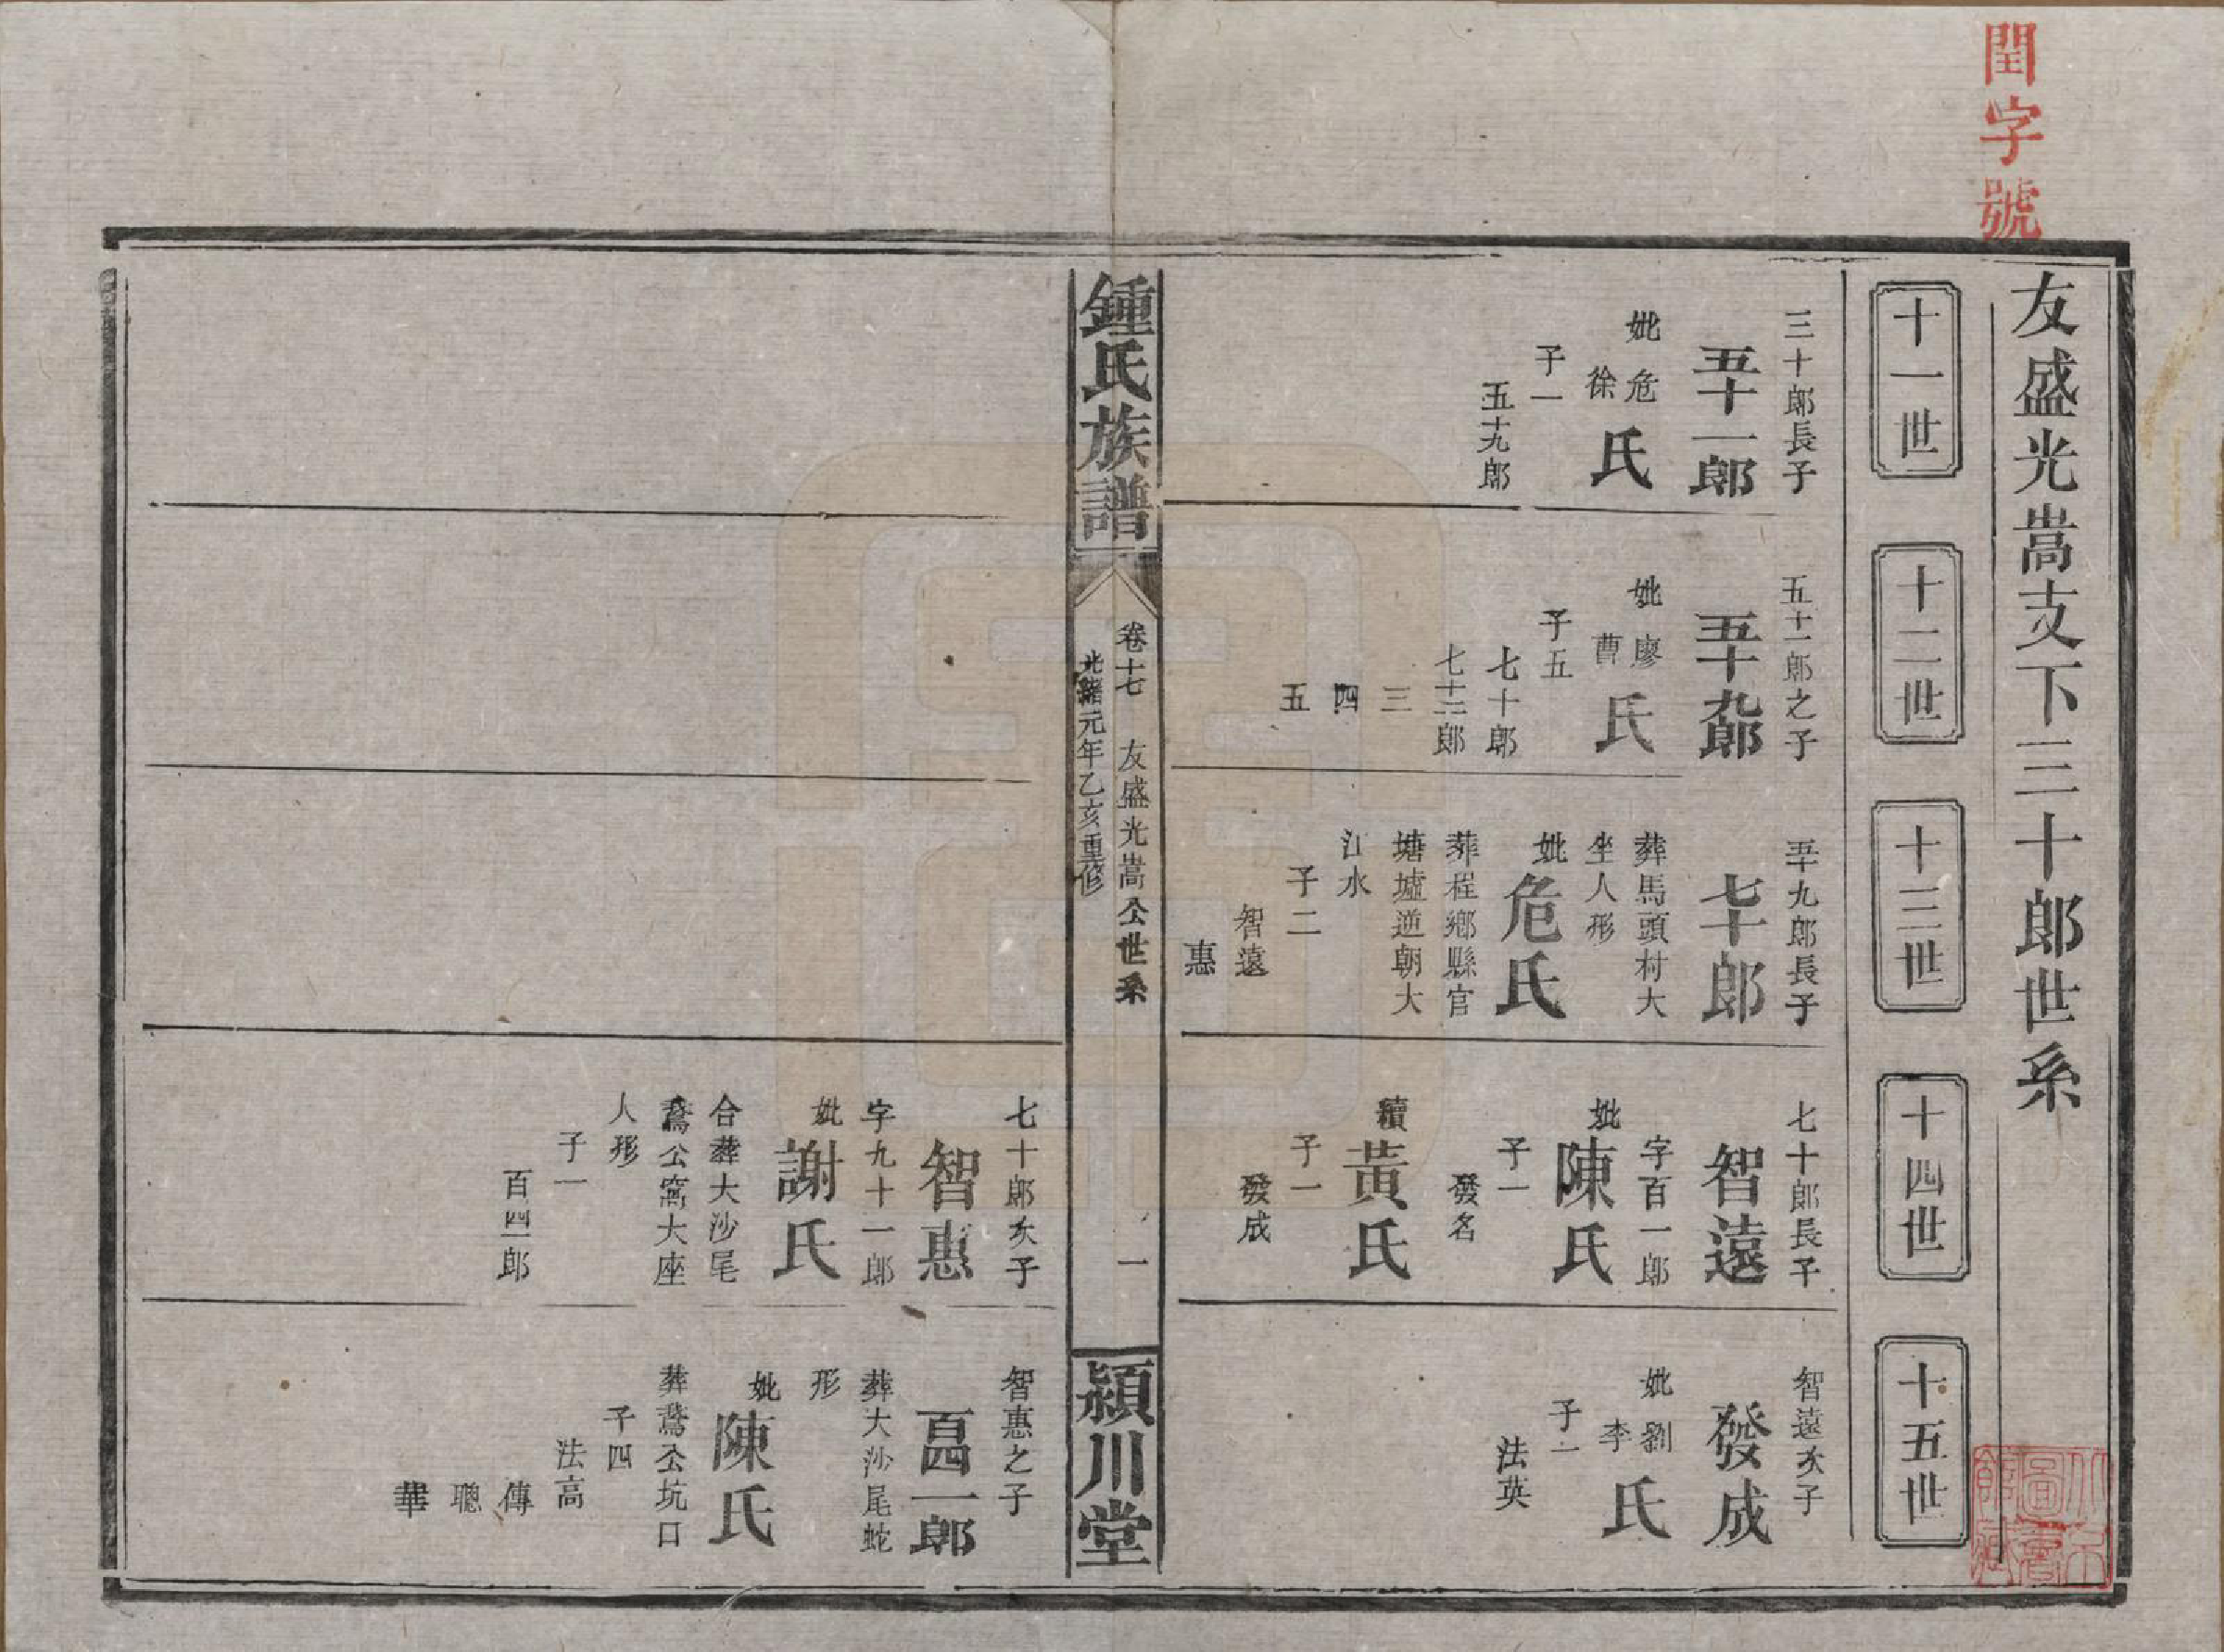 閏字號
友盛光嵩支下三十郎世系
十一世
十二世
十三世
十四世
十五世
三十郎長子
五十一郎
妣危徐氏
子一
五十九郎
五十一郎之子
五十九郎
妣廖曹氏
子五
七十郎
七十二郎
三
四
五
五十九郎長子
七十郎
葬馬頭村大
坐人形
妣危氏
葬程鄉縣官
塘墟逆朝大
江水
子二
智遠
惠
七十郎長子
智遠
字百一郎
妣陳氏
子一
發名
續黃氏
子一
發成
智遠次子
發成
妣劉李氏
子一
法英
鍾氏族譜
卷十七 友盛光嵩公世系
光緒元年乙亥重修
一
潁川堂
七十郎次子
智惠
字九十一郎
妣謝氏
合葬大沙尾
鵞公窩大座
人形
子一
百四一郎
智惠之子
百四一郎
葬大沙尾蛇
形
妣陳氏
葬鵞公坑口
子四
法高
傳
聰
華